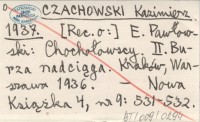 CZACHOWSKI Kazimierz
1937. [Rec. o:] E. Pawłow-
ski: Chochołowscy. II. Bu-
rza nadciąga. Kraków, War-
szawa 1936. — Nowa
Książka 4, nr 9: 531-532.